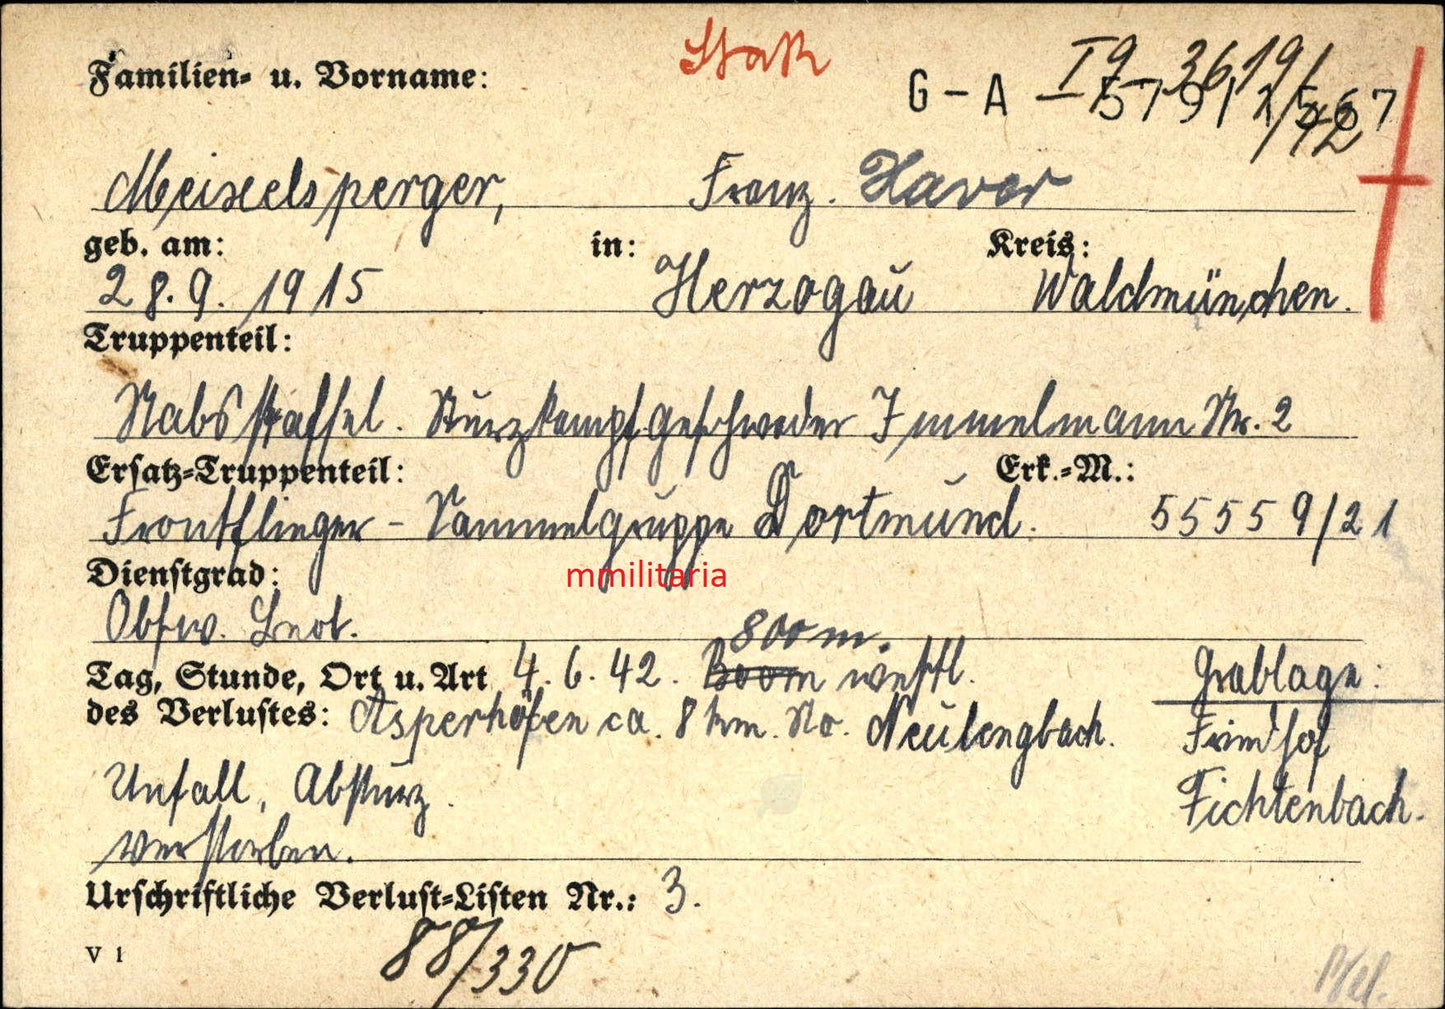 Familien- u. Vorname:
G-A
Meixelsperger, Franz. Xaver
geb. am: in: Kreis:
28.9.1915 Herzogau Waldmünchen.
Truppenteil:
Stabsstaffel. Sturzkampfgeschwader Immelmann Nr. 2
Ersatz-Truppenteil: Erk.-M.:
Frontflieger-Sammelgruppe Dortmund. 55559/21
Dienstgrad:
Obfw.
800 m.
Tag, Stunde, Ort u. Art 4.6.42. westl. Grablage:
des Verlustes: Asperhofen ca. 8 km. No. Neulengbach. Friedhof
Unfall, Absturz. Fichtenbach.
verstorben.
Urschriftliche Verlust-Listen Nr.: 3.
V 1
88/330
mmilitaria